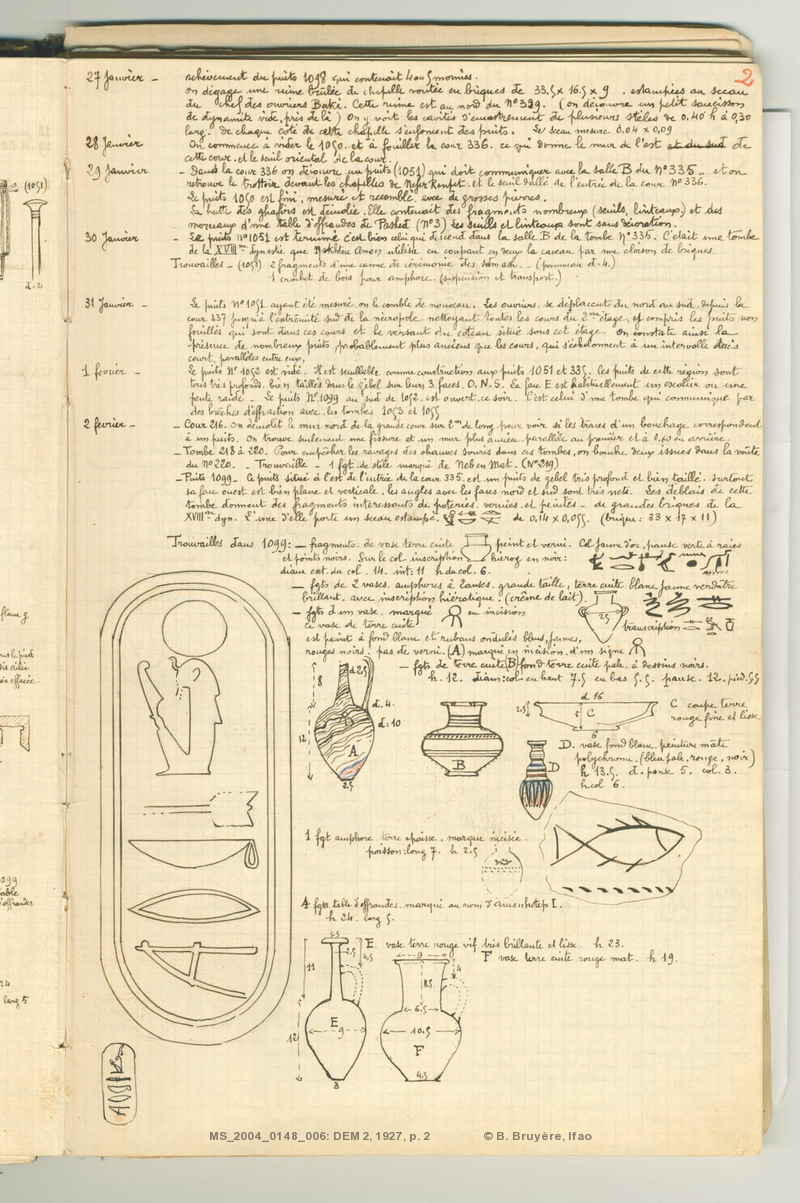 2
27 Janvier - achèvement du puits 1098 qui contenait 4 ou 5 momies.
on dégage une ruine brûlée de chapelle voutée en briques de 33.5 x 16.5 x 9. estampées au sceau
du chef des ouvriers Baki. Cette ruine est au nord du N° 329. (on découvre un petit saucisson
de dynamite vide, près de là) On y voit les cavités d'encastrement de plusieurs stèles de 0.40 h à 0,30
larg. De chaque côté de cette chapelle s'enfoncent des puits. Le sceau mesure 0.04 x 0,09
28 Janvier On commence à vider le 1050. et à fouiller la cour 336. ce qui donne le mur de l'est et du sud de
cette cour. et le seuil oriental de la cour.
29 Janvier - Dans la cour 336 on découvre un puits (1051) qui doit communiquer avec la salle B du N° 335. et on
retrouve le trottoir devant les chapelles de Nefer Renpet. et le seuil dallé de l'entrée de la cour N° 336.
Le puits 1050 est fini, mesuré et recomblé, avec de grosses pierres.
La hutte des ghafirs est démolie. Elle contenait des fragments nombreux (seuils, linteaux) et des
morceaux d'une table d'offrandes de Pashed (N° 3) les seuils et linteaux sont sans décoration.
30 Janvier - Le puits n° 1051 est terminé c'est bien celui qui descend dans la salle B de la tombe N° 335. C'était une tombe
de la XVIIIème dynastie que Nakhtou Amon utilisa en coupant en deux la caveau par une cloison de briques.
Trouvailles - (1051) 2 fragments d'une canne de cérémonie des samash - (pommeau d.4.)
1 crochet de bois pour amphore. (suspension et transport.)
31 Janvier - Le puits N° 1051. ayant été mesuré, on le comble de nouveau. Les ouvriers. se déplacent du nord au sud. depuis la
cour 337 jusqu'à l'extrémité sud de la nécropole nettoyant toutes les cours du 2me étage, et compris les puits non
fouillés qui sont dans ces cours et le versant du coteau situé sous cet étage. on constate ainsi la
présence de nombreux puits probablement plus anciens que les cours, qui s'échelonnent à un intervalle
court, parallèles entre eux.
1 fevrier - Le puits N° 1052 est vidé. Il est semblable comme construction aux puits 1051 et 335. les puits de cette région sont
très très profond. bien taillés dans le gebel sur leurs 3 faces. O. N. S. La face E est habituellement un escalier ou une
pente raide - Le puits N° 1099 au sud de 1052. est ouvert, ce soir. C'est celui d'une tombe qui communique par
des brèches d'effraction avec les tombes 1053 et 1055
2 fevrier - Cour 216. On démolit le mur nord de la grande cour sur 2m de long pour voir si les traces d'un bouchage correspondent
à un puits. On trouve seulement une fissure et un mur plus ancien. parallèle au premier et à 0.60 en arrière.
- Tombe 218 à 220. Pour empêcher les ravages des chauves souris dans ces tombes, on bouche deux issues dans la voûte
du N° 220. - Trouvaille - 1 fgt de stèle marqué de Neb en Mat. (N° 219)
- Puits 1099. Ce puits situé à l'est de l'entrée de la cour 335. est un puits de gebel très profond et bien taillé. Surtout
sa face ouest est bien plane et verticale. les angles avec les faces nord et sud sont très nets. Les déblais de cette
tombe donnent des fragments intéressants de poteries. vernies. et peintes - de grandes briques de la
XVIIIme dyn. L'une d'elle porte un sceau estampé. de 0,14 x 0,055. (brique: 33 x 17 x 11)
Trouvailles dans 1099: - fragments. de vase terre cuite peint et verni. Col jaune d'or, panse verte à raies
et points noirs. Sur le col inscription hiérog en noir:
diam ext. du col. 14. int: 11 h. du col. 6.
- fgts de 2 vases. amphores à 2 anses. grande taille, terre cuite blanc jaune verdâtre
brillant. avec inscription hiératique. (crème de lait).
transcription
- fgts d'un vase. marqué en incision
ce vase de terre cuite
est peint à fond blanc et rubans ondulés bleus, jaunes,
rouges noirs. pas de verni. (A) marqué en incision. d'un signe
- fgts de terre cuite (B) fond terre cuite pale. à dessins noirs.
h. 12. diam: col en haut 7.5 en bas 5.5. panse. 12. pied. 5.5
8
d 2.5
d. 4.
d: 10
12
A
2.5
B
d 16
2.5
5
C
6
C coupe terre
rouge fine et lisse
D
D. vase fond blanc, peinture mate
polychrome. (bleu pale, rouge, noir)
h 13.5. d. panse 5. col. 3.
h. col 6.
1 fgt amphore. terre épaisse. marque incisée.
poisson: long 7. h 2.5
4 fgts table d'offrandes. marqué au nom d'Amenhotep I.
h 24. larg 5.
E. vase terre rouge vif très brillante et lisse. h 23.
F vase terre cuite rouge mat. h 19.
11
2.5
4.5
E
9
12
3
9
4
8.5
6.5
10.5
F
4.5
(1051)
d. 2
larg 5
MS_2004_0148_006: DEM 2, 1927, p. 2 © B. Bruyère, Ifao